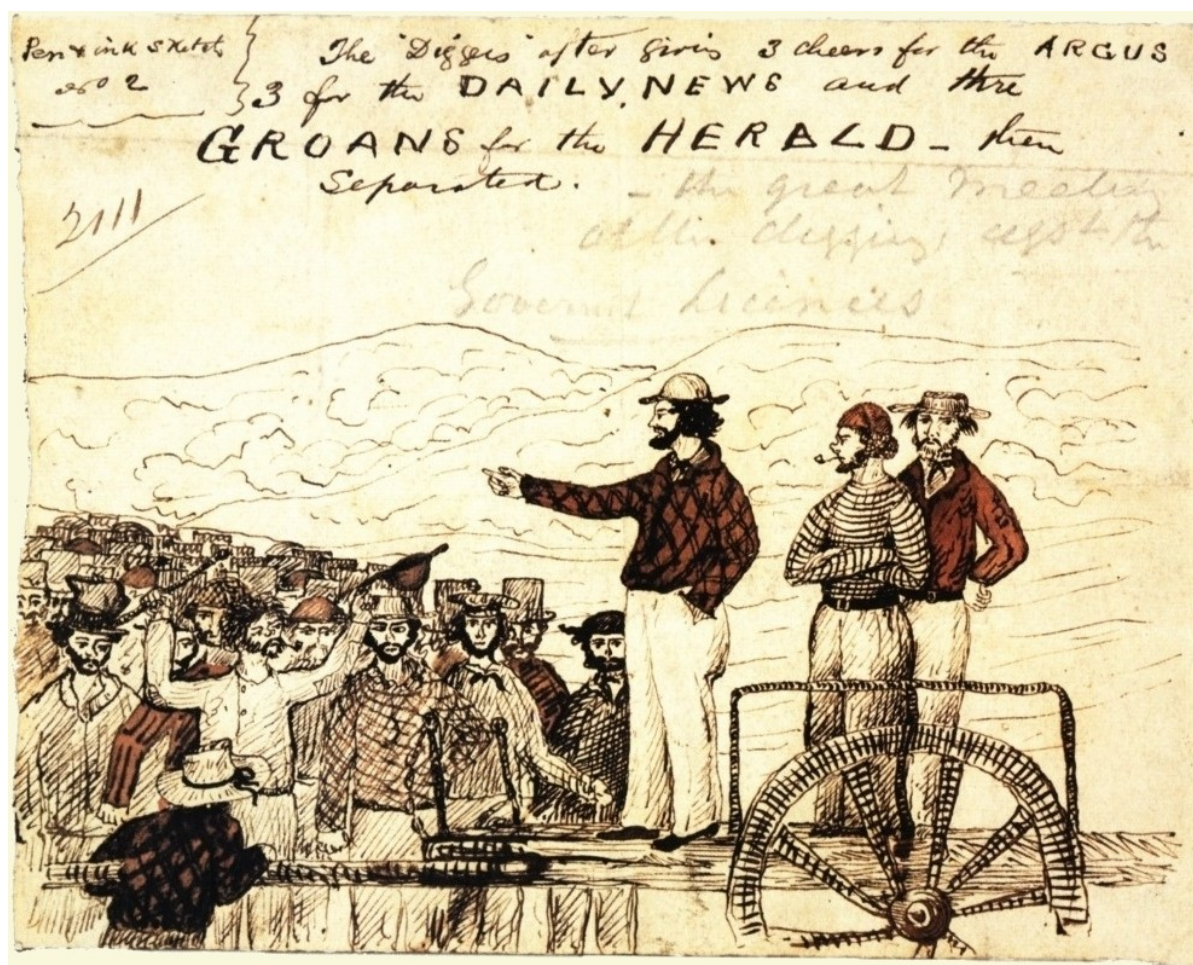 Pen & ink sketch
No 2
The "Diggers" after giving 3 cheers for the ARGUS
3 for the DAILY NEWS and three
GROANS for the HERALD – then
Separated.
– the great Meeting
at the diggings agst the
Governmt Licences
2111